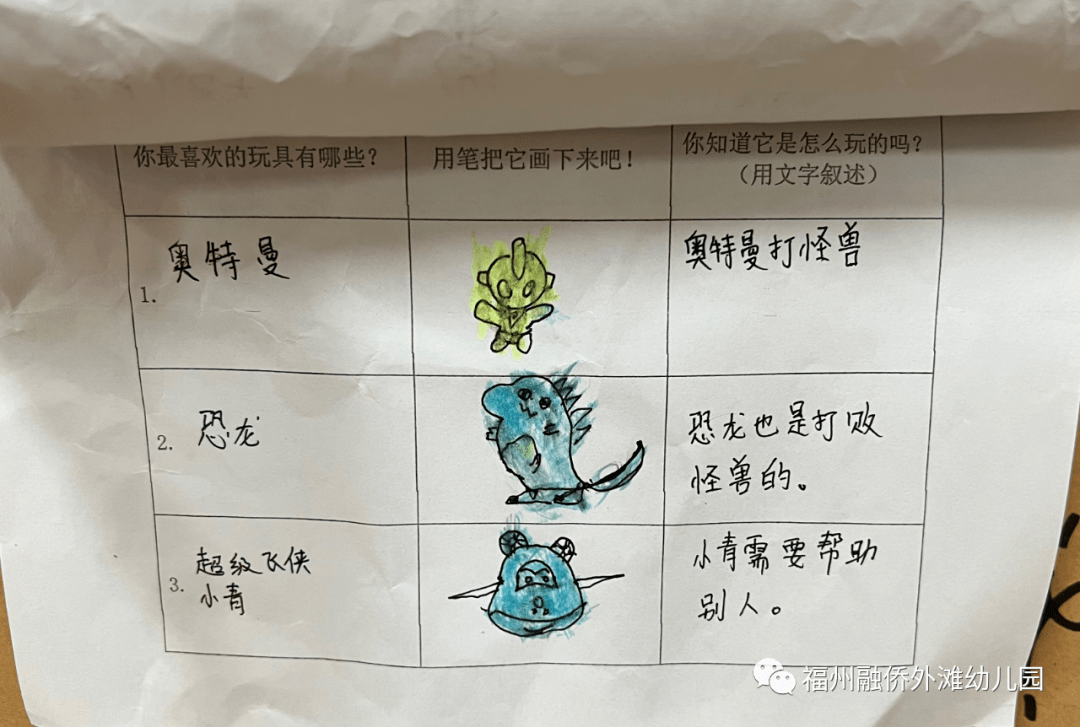 你最喜欢的玩具有哪些？
用笔把它画下来吧！
你知道它是怎么玩的吗？
（用文字叙述）
1.
奥特曼
奥特曼打怪兽
2.
恐龙
恐龙也是打败
怪兽的。
3.
超级飞侠
小青
小青需要帮助
别人。
福州融侨外滩幼儿园